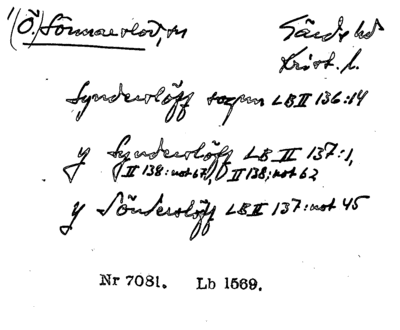 1) (Ö.) Sönnarslöv, sn Gärds hd
Krist. l.
Synderslöff sogen LB II 136:14
y Synderslöff LB II 137:1,
II 138: not 67, II 138; not 62
y Sönderslöff LB II 137: not 45
Nr 7081. Lb 1569.